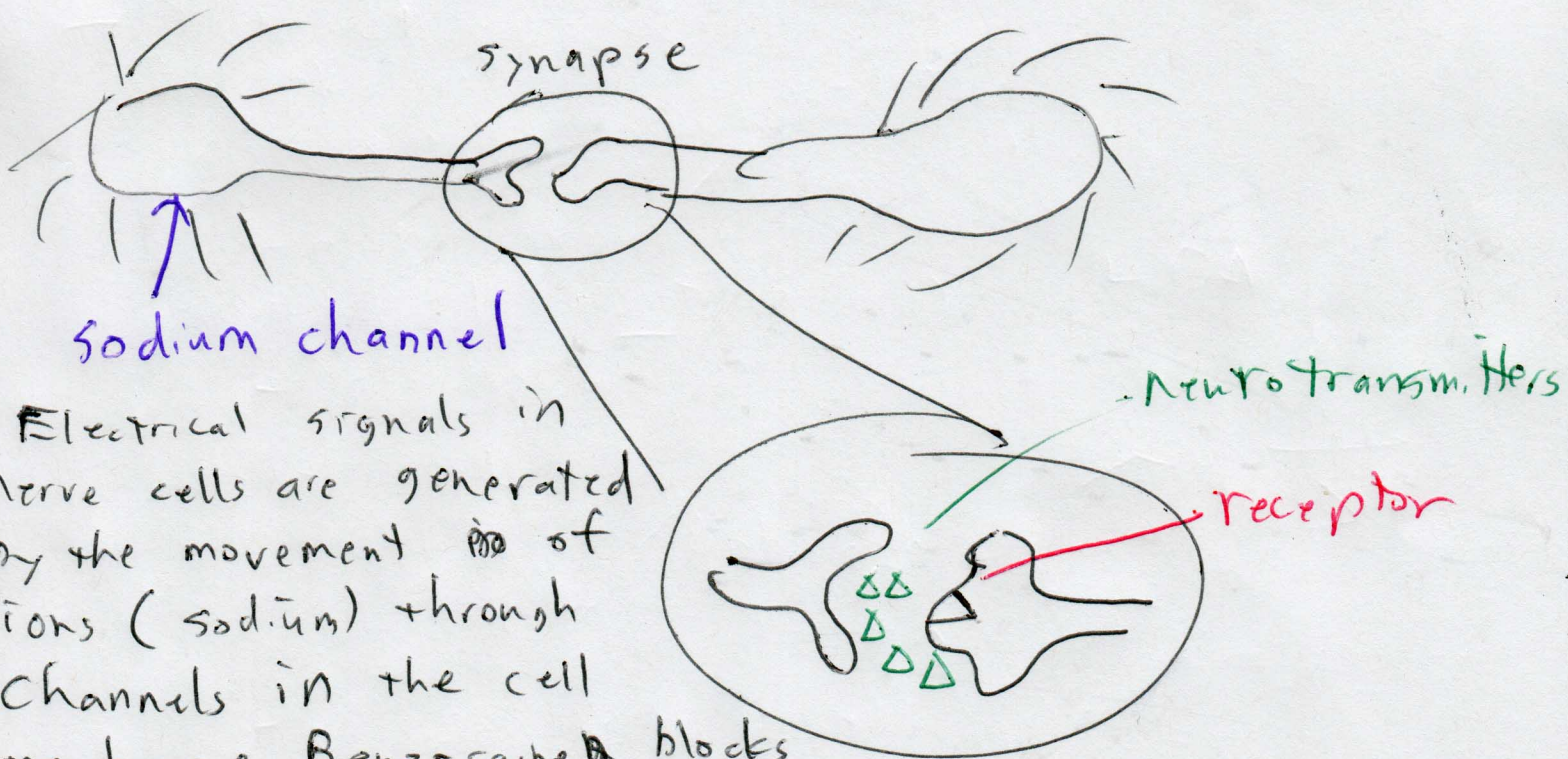 synapse
sodium channel
neurotransmitters
receptor
Electrical signals in
nerve cells are generated
by the movement of
ions (sodium) through
channels in the cell
blocks